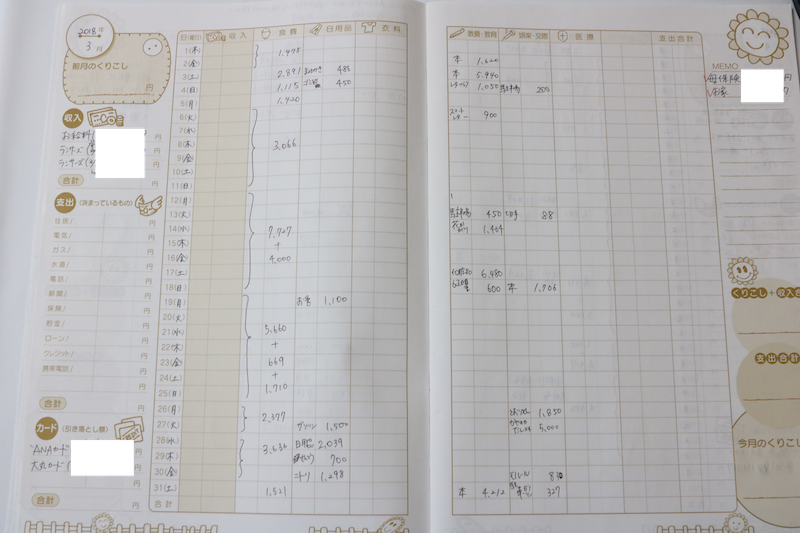 2018年
3月
前月のくりこし
円
収入
お給料
円
円
円
合計
円
支出 (決まっているもの)
住居/ 円
電気/ 円
ガス/ 円
水道/ 円
電話/ 円
新聞/ 円
保険/ 円
貯金/ 円
ローン/ 円
クレジット/ 円
携帯電話/ 円
合計 円
カード (引き落とし額)
ANAカード
大丸カード
合計 円
日(曜日) 収入 食費 日用品 衣料
1(木) 1,498
2(金)
3(土) 2,891 486
4(日) 1,115 450
5(月) 1,420
6(火)
7(水)
8(木) 3,066
9(金)
10(土)
11(日)
12(月)
13(火)
14(水) 7,727
15(木) +
16(金) 4,000
17(土)
18(日)
19(月) 1,100
20(火)
21(水) 5,660
22(木) +
23(金) 669
24(土) +
25(日) 1,710
26(月) 2,377
27(火) ガソリン 1,500
28(水) 3,636 日用品 2,039
29(木) 700
30(金) ニトリ 1,298
31(土) 1,521
合計
教養・教育 娯楽・交際 医療 支出合計
本 1,620
本 5,940
1,050 駐車場 200
900
駐車場 450 切手 88
1,404
化粧品 6,480
600 本 1,706
1,850
5,000
本 4,212 327
MEMO
円
くりこし+収入合
支出合計
今月のくりこ